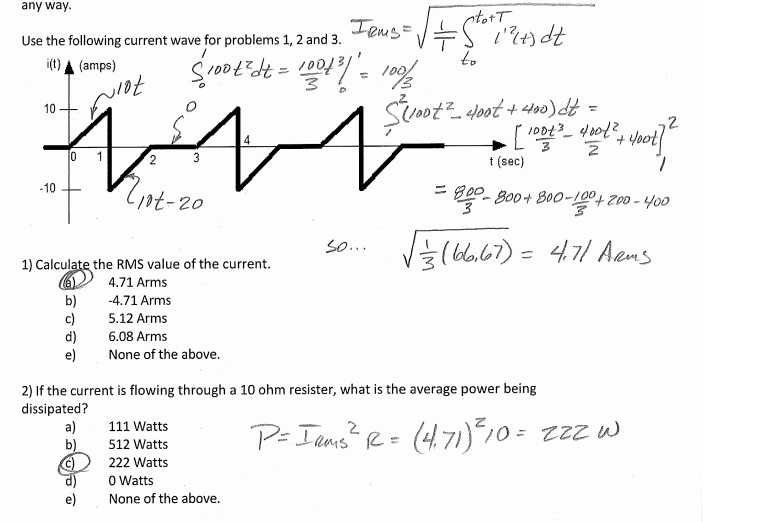 any way.
Irms = √(1/T ∫t₀^t₀+T i²(t) dt)
Use the following current wave for problems 1, 2 and 3.
i(t) (amps)
∫₀¹ 100t² dt = 100t³/3 |₀¹ = 100/3
10t
10
0
∫
∫₁²(100t² - 400t + 400) dt =
[100t³/3 - 400t²/2 + 400t]₁²
0 1 2 3 4
t (sec)
-10
10t-20
= 800/3 - 800 + 800 - 100/3 + 200 - 400
so... √(1/3 (66.67)) = 4.71 Arms
1) Calculate the RMS value of the current.
a) 4.71 Arms
b) -4.71 Arms
c) 5.12 Arms
d) 6.08 Arms
e) None of the above.
2) If the current is flowing through a 10 ohm resister, what is the average power being
dissipated?
a) 111 Watts
b) 512 Watts
c) 222 Watts
d) 0 Watts
e) None of the above.
P = Irms² R = (4.71)² 10 = 222 W